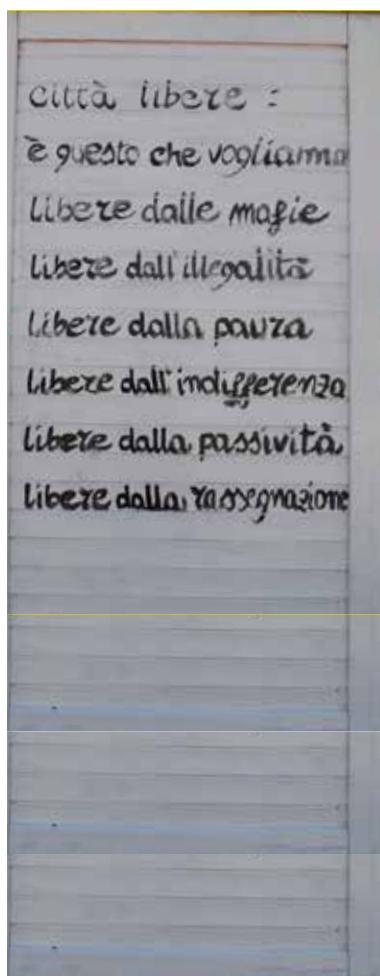 città libere :
è questo che vogliamo
libere dalle mafie
libere dall'illegalità
libere dalla paura
libere dall'indifferenza
libere dalla passività
libere dalla rassegnazione